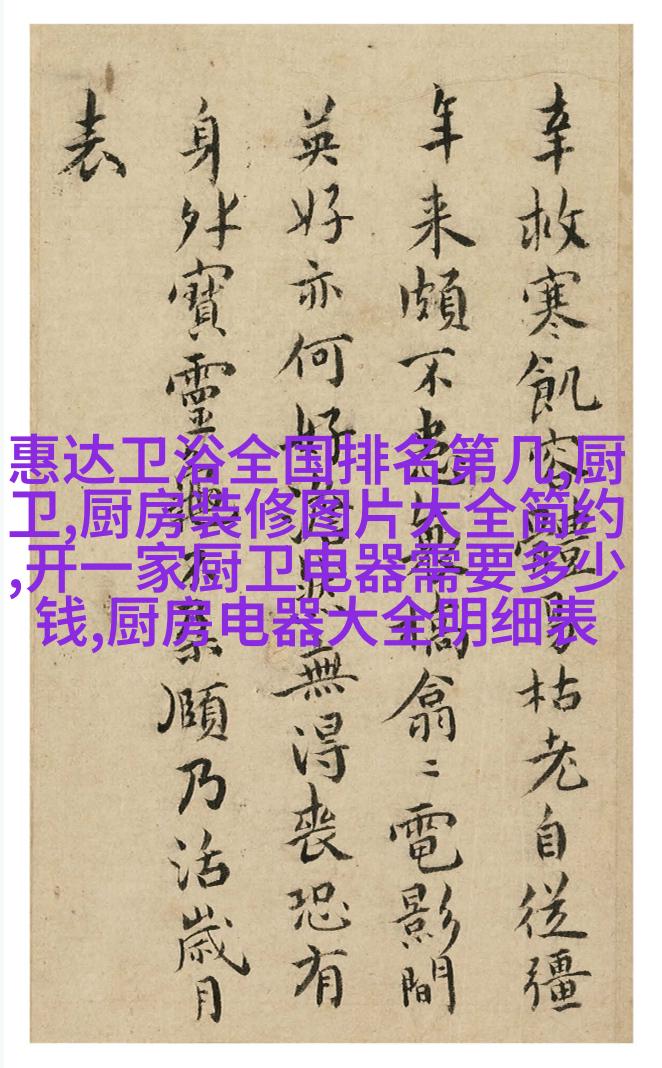 幸救寒飢容體易枯老自從彊
年来頗不患翕〻電影間
英好亦何好無得喪恐有
身外寶靈頤乃活歲月
表
惠达卫浴全国排名第几,厨
卫,厨房装修图片大全简约
,开一家厨卫电器需要多少
钱,厨房电器大全明细表